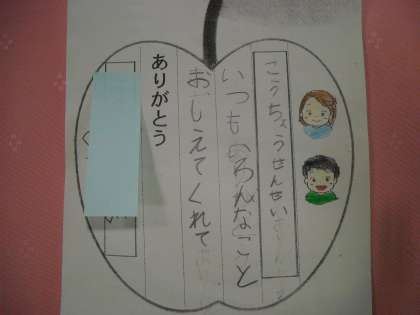 こうちょうせんせい
いつもいろんなこと
おしえてくれて
ありがとう